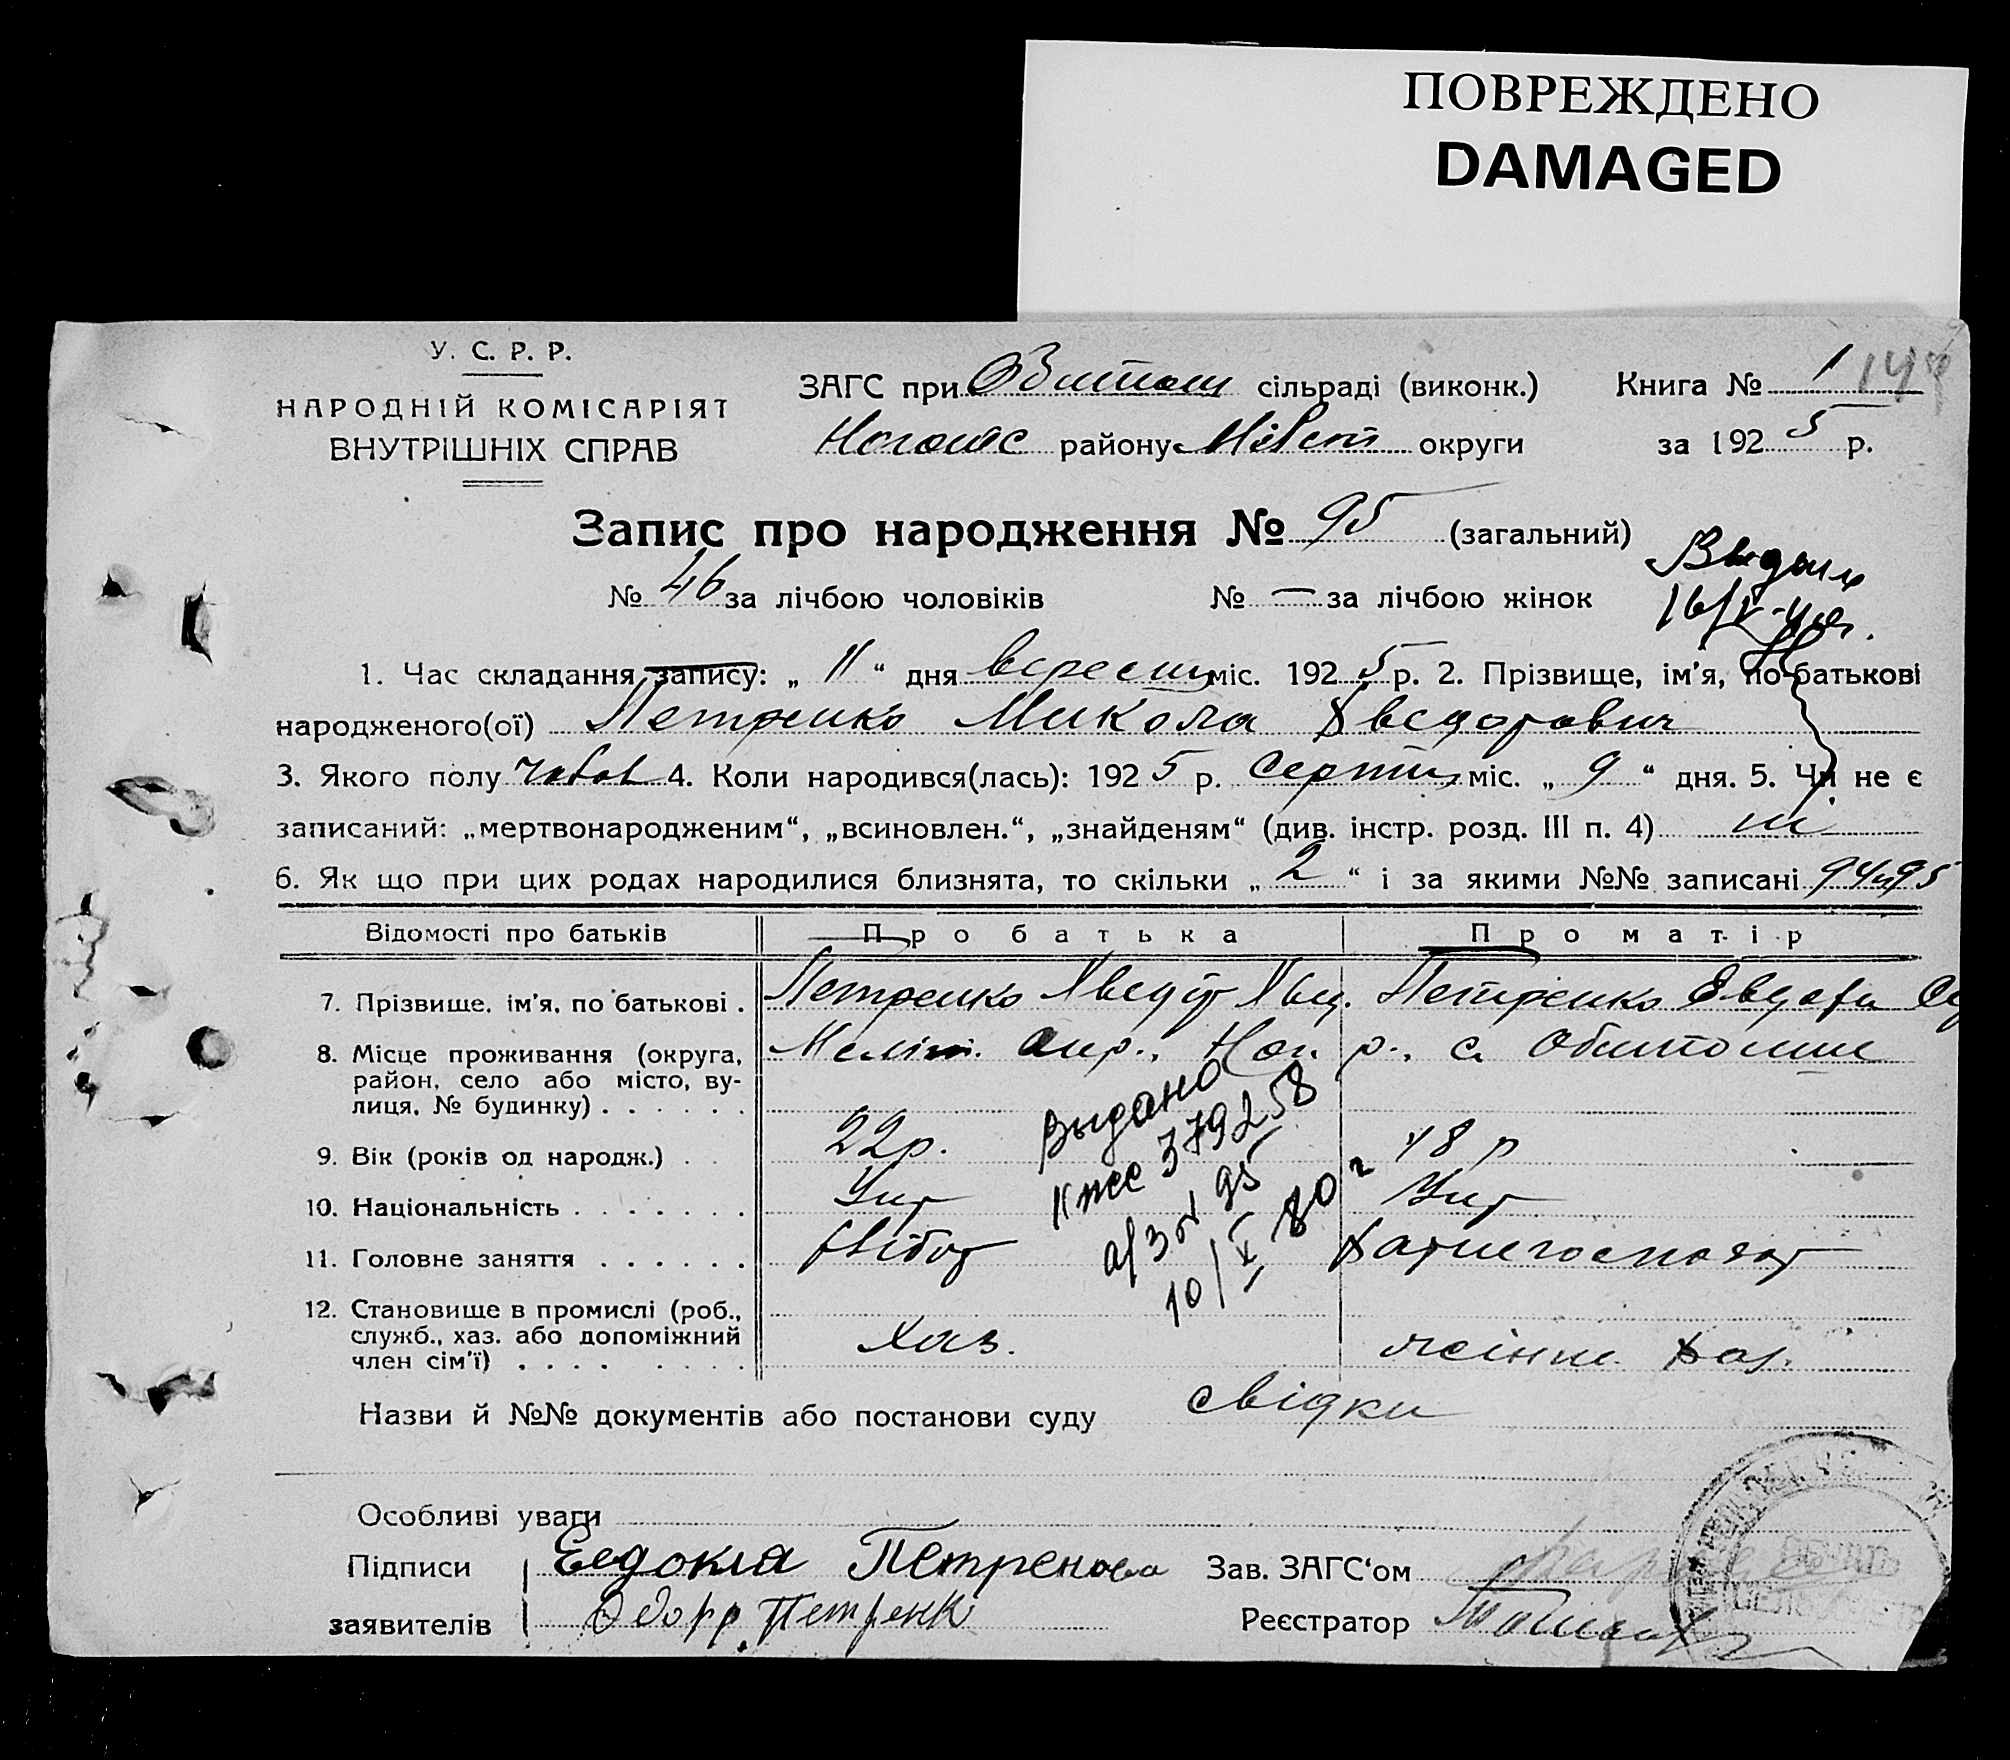 ПОВРЕЖДЕНО
DAMAGED
У. С. Р. Р.
НАРОДНІЙ КОМІСАРІЯТ
ВНУТРІШНІХ СПРАВ
ЗАГС при сільраді (виконк.) Книга № 1
району округи за 1925 р.
Запис про народження № 95 (загальний)
№ 46 за лічбою чоловіків № — за лічбою жінок
1. Час складання запису: „ 11 “ дня міс. 1925 р. 2. Прізвище, ім'я, по-батькові
народженого(ої) Петренко Микола Хведорович
3. Якого полу 4. Коли народився(лась): 1925 р. міс. „ 9 “ дня. 5. Чи не є
записаний: „мертвонародженим“, „всиновлен.“, „знайденям“ (див. інстр. розд. III п. 4) ні
6. Як що при цих родах народилися близнята, то скільки „ 2 “ і за якими №№ записані 94 и 95
Відомості про батьків Про батька Про матір
7. Прізвище, ім'я, по батькові . Петренко Петренко
8. Місце проживання (округа, Меліт. окр., Ног. р., с. Обиточне
район, село або місто, ву-
лиця, № будинку) . . . . . .
Выдано
379258
9. Вік (років од народж.) . . 22 р. 18 р
10. Національність . . . . . . . Укр Укр
95
10/X 80 г
11. Головне заняття . . . . . . хлібор
12. Становище в промислі (роб.,
служб., хаз. або допоміжний хаз.
член сім'ї) . . . . . . . .
Назви й №№ документів або постанови суду свідки
Особливі уваги
Підписи Евдокия Петренкова Зав. ЗАГС‘ом
заявителів Петренко Реєстратор